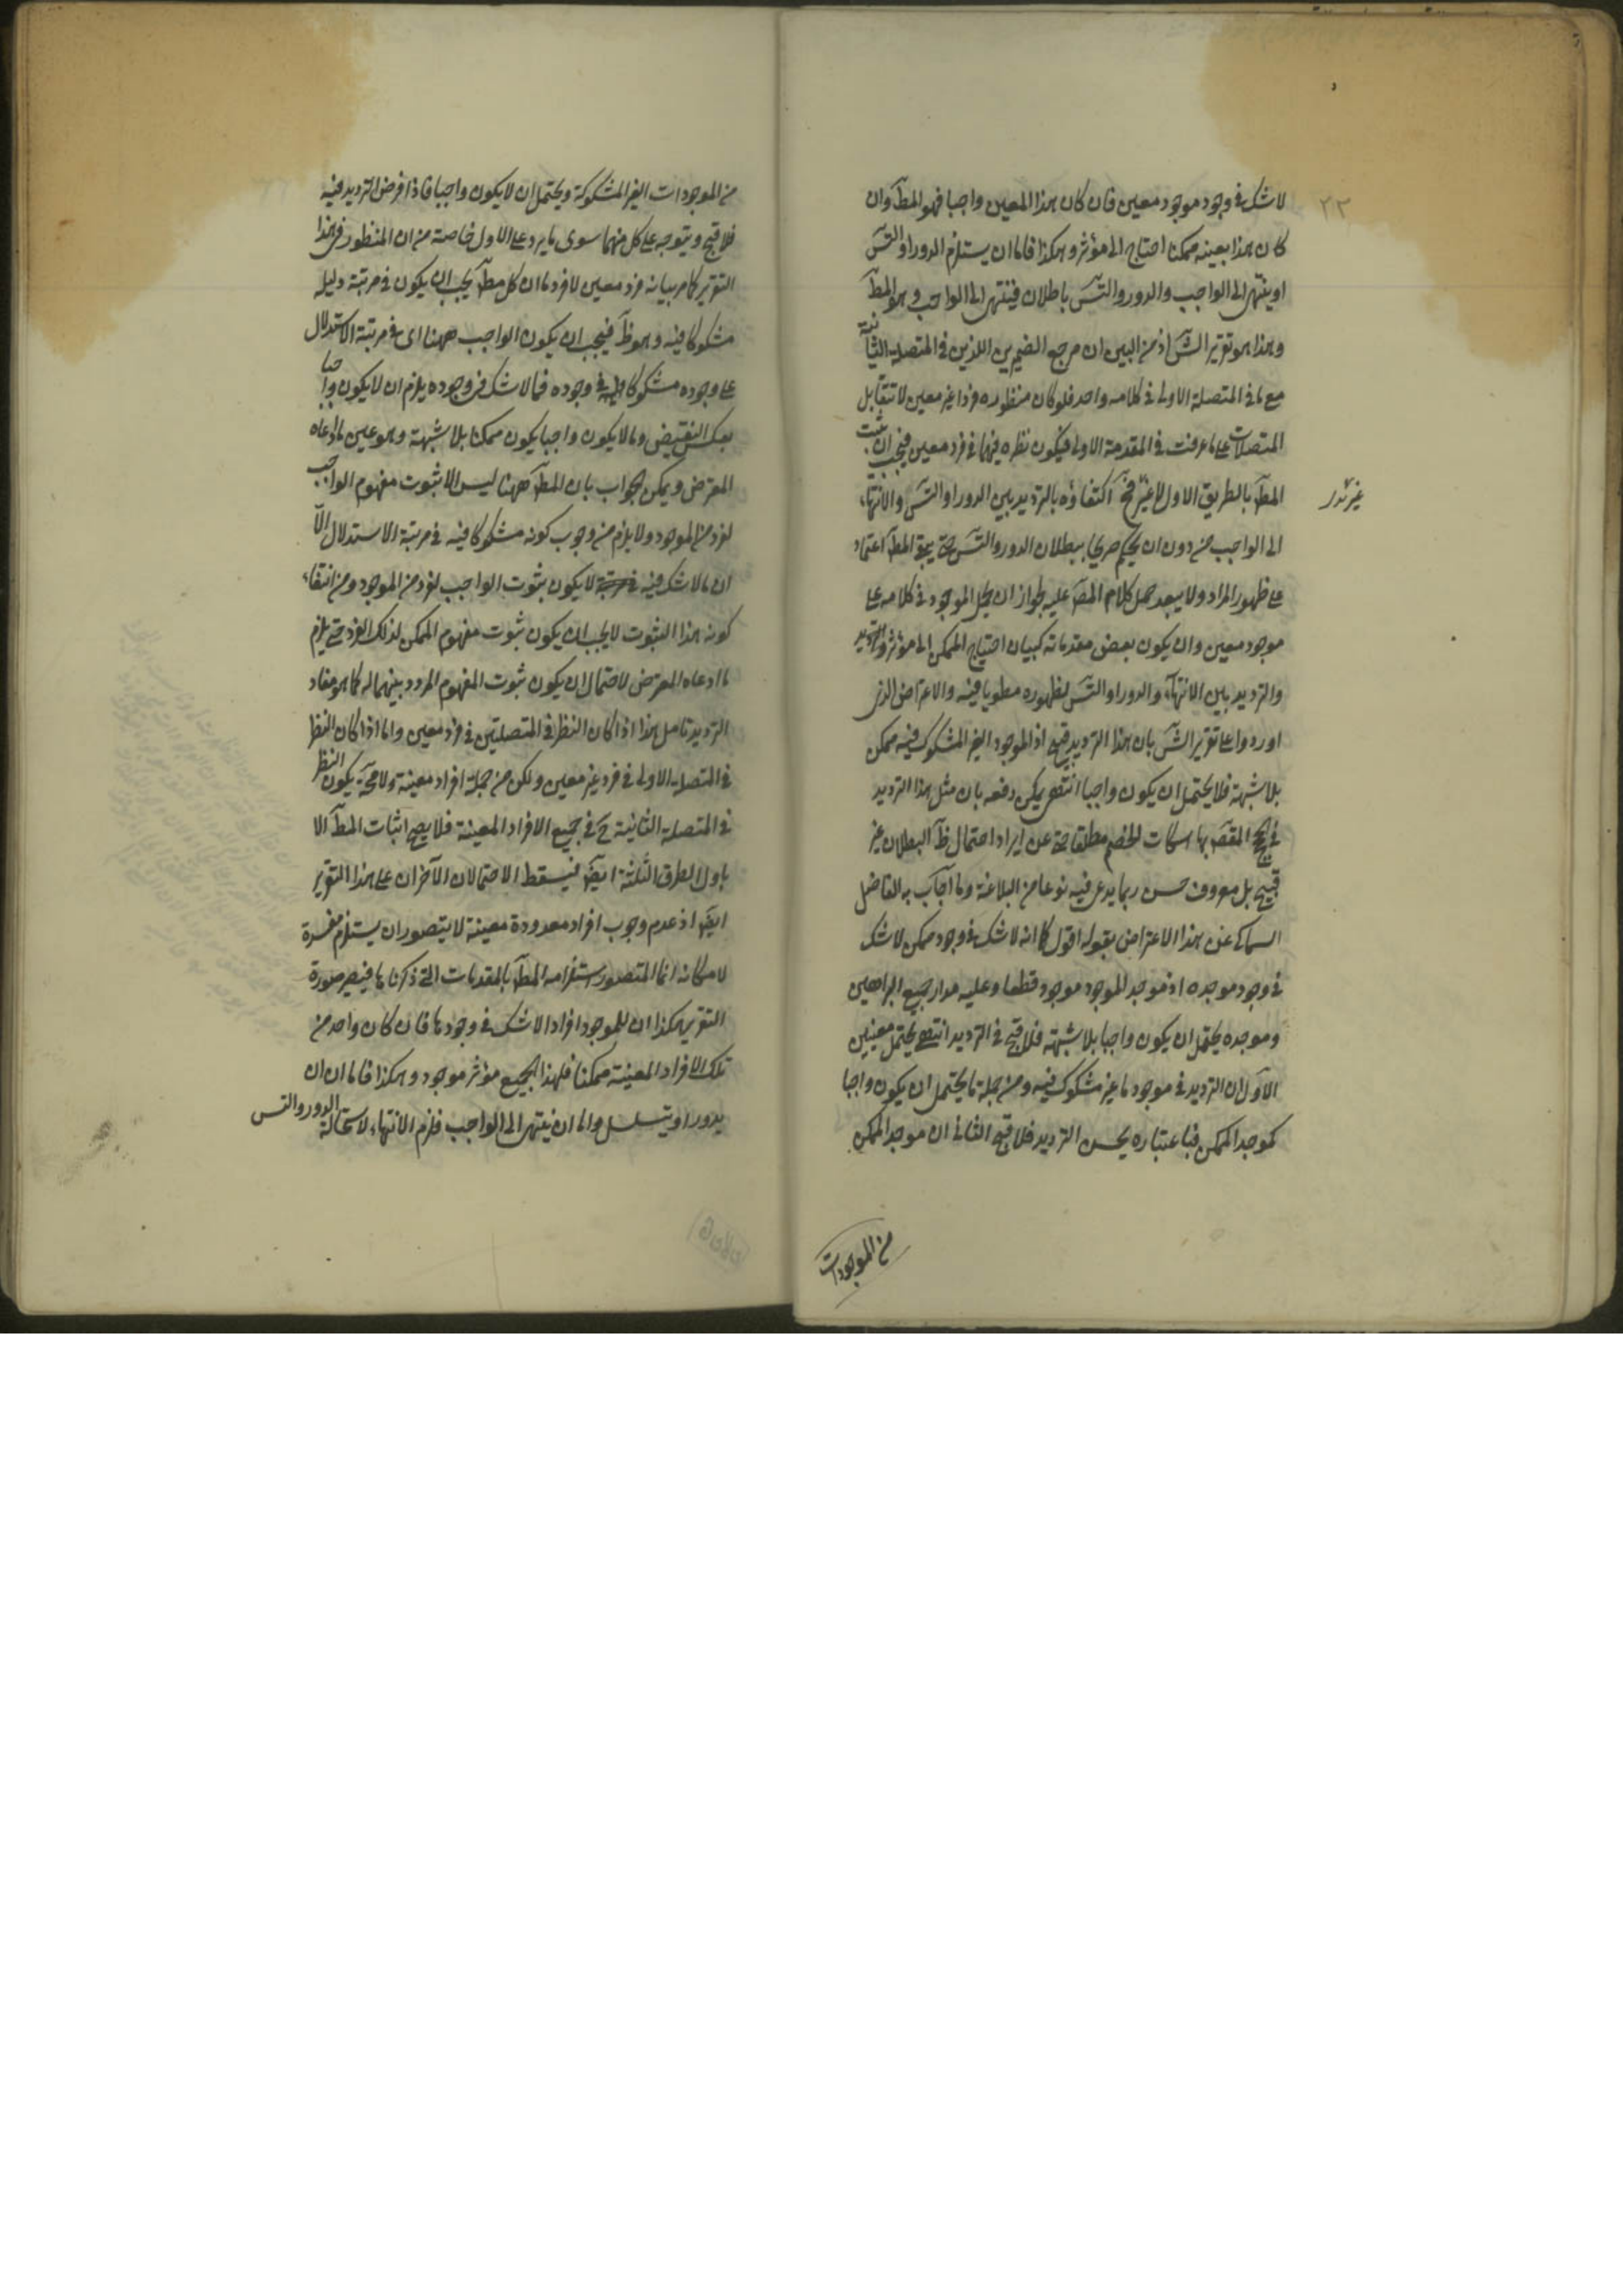 لا شك فى وجود موجود معين فان كان هذا المعين واجبا فهو المطآ وان
كان هذا بعينه ممكنا احتاج الى مؤثر وهكذا فاما ان يستلزم الدور او التسآ
او ينتهى الى الواجب والدور والتسآ باطلان فينتهى الى الواجب وهو المطآ
وهذا هو تقرير الشآ اذ من البين ان مرجع الضميرين اللذين فى المتصلة الثانية
مع ما فى المتصلة الاولى فى كلامه واحد فلو كان منظوره فردا غير معين لا تتقابل
المتصلات على ما عرفت فى المقدمة الاولى فيكون نظره فيهما فى فرد معين فيجب ان يثبت
المطآ بالطريق الاول لا غير فحآ اكتفاؤه بالترديد بين الدور او التسآ والانتهاء
غير تدر
الى الواجب من دون ان يحكم صريحا ببطلان الدور والتسآ حتى يبقى المطآ اعتماد
على ظهور المراد ولا يبعد حمل كلام المصآ عليه بجواز ان يحمل الموجود فى كلامه على
موجود معين وان يكون بعض مقدماته كبيان احتياج الممكن الى مؤثر والترديد
والترديد بين الانتهاء والدور او التسآ لظهوره مطويا فيه والاعتراض الذى
اوردوا على تقرير الشآ بان هذا الترديد قبيح اذ الموجود الغير المشكوك فيه ممكن
بلا شبهة فلا يحتمل ان يكون واجبا انتهى يمكن دفعه بان مثل هذا الترديد
فى الحجج المقصآ بها اسكات الخصم مطلقا حتى عن ايراد احتمال ظآ البطلان غير
قبيح بل معروف حسن ربما يدعى فيه نوعا من البلاغة وما اجاب به الفاضل
السماكى عن هذا الاعتراض بقوله اقول كما انه لا شك فى وجود ممكن لا شك
فى وجود موجده اذ موجد الموجود موجود قطعا وعليه مدار جميع البراهين
وموجده يحتمل ان يكون واجبا بلا شبهة فلا قبح فى الترديد انتهى يحتمل معنيين
الاول ان الترديد فى موجود ما غير مشكوك فيه ومن جملة ما يحتمل ان يكون واجبا
كموجد الممكن فباعتباره يحسن الترديد فلا قبح الثانى ان موجد الممكن
من الموجودات
من الموجودات الغير المشكوكة ويحتمل ان لا يكون واجبا فاذا فرض الترديد فيه
فلا قبح ويتوجه على كل منهما سوى ما يرد على الاول خاصة من ان المنظور فى هذا
التقرير كما مر بيانه فرد معين لا فرد ما ان كل مطآ يجب ان يكون فى مرتبة دليله
مشكوكا فيه وهو ظآ فيجب ان يكون الواجب ههنا اى فى مرتبة الاستدلال
على وجوده مشكوكا فى وجوده فما لا شك فى وجوده يلزم ان لا يكون واجبا
بعكس النقيض وما لا يكون واجبا يكون ممكنا بلا شبهة وهو عين ما ادعاه
المعترض ويمكن الجواب بان المطآ ههنا ليس الا ثبوت مفهوم الواجب
لفرد من الموجود ولا يلزم من وجوب كونه مشكوكا فيه فى مرتبة الاستدلال الا
ان ما لا شك فيه لا يكون ثبوت الواجب لفرد من الموجود ومن انتفاء
كونه هذا الثبوت لا يجب ان يكون ثبوت مفهوم الممكن لذلك الفرد حتى يلزم
ما ادعاه المعترض لاحتمال ان يكون ثبوت المفهوم المردد بينهما له كما هو مفاد
الترديد تامل هذا اذا كان النظر فى المتصلتين فى فرد معين واما اذا كان النظر
فى المتصلة الاولى فى فرد غير معين ولكن من جملة افراد معينة ولا محآة يكون النظر
فى المتصلة الثانية حآ فى جميع الافراد المعينة فلا يصح اثبات المطآ الا
باول الطرق الثلثة ايضآ فيسقط الاحتمالان الآخران على هذا التقرير
ايضآ اذ عدم وجوب افراد معدودة معينة لا يتصور ان يستلزم مفسدة
لامكانه انما المتصور استلزامه المطآ بالمقدمات التى ذكرناها فيصير صورة
التقرير هكذا ان للموجود افرادا لا شك فى وجودها فان كان واحد من
تلك الافراد المعينة ممكنا فلهذا الجميع مؤثر موجود وهكذا فاما ان ان
يدور او يتسلسل واما ان ينتهى الى الواجب فلزم الانتهاء لاستحالة الدور والتس